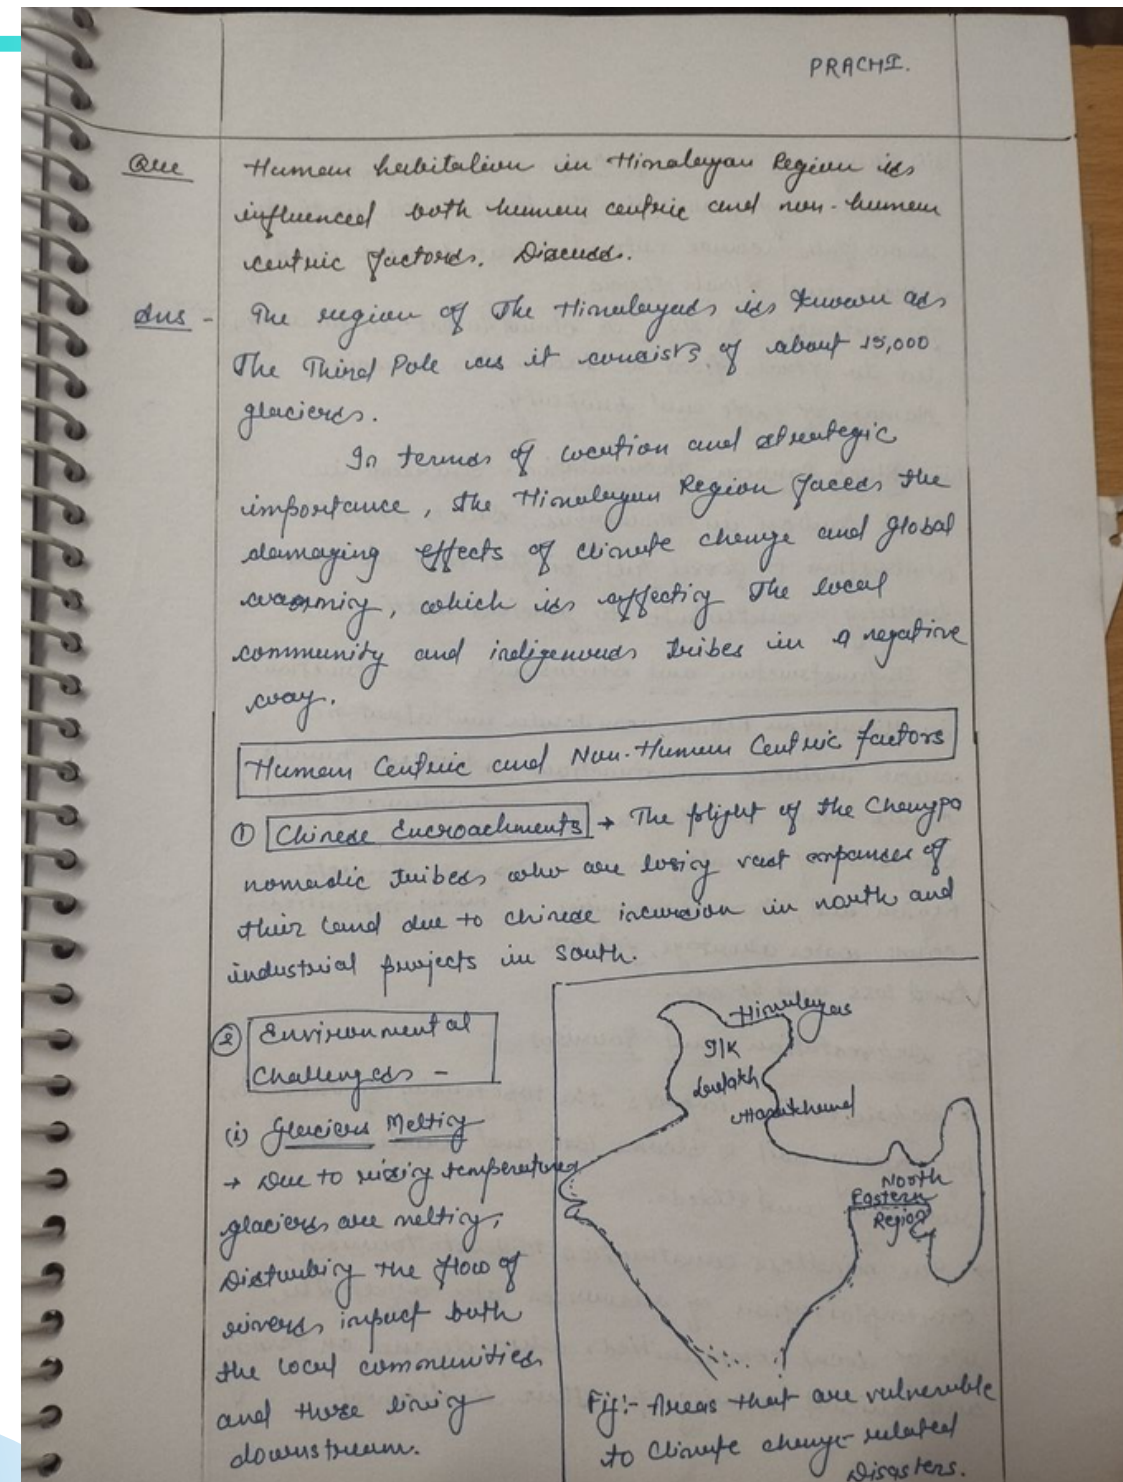 PRACHI.
Que
Human habitation in Himalayan Region is
influenced both human centric and non-human
centric factors. Discuss.
Ans -
The region of The Himalayas is known as
The Third Pole as it consists of about 15,000
glaciers.
In terms of location and strategic
importance, the Himalayan Region faces the
damaging effects of climate change and global
warming, which is affecting The local
community and indigenous tribes in a negative
way.
Human Centric and Non-Human Centric factors
① Chinese Encroachments → The plight of the Changpa
nomadic tribes who are losing vast expanses of
their land due to chinese incursion in north and
industrial projects in south.
② Environmental
Challenges -
(i) Glaciers Melting
→ Due to rising temperatures
glaciers are melting,
Disturbing the flow of
rivers impact both
the local communities
and those living
downstream.
Himalayas
J/K
Ladakh
Uttarakhand
North
Eastern
Region
Fig:- Areas that are vulnerable
to Climate change-related
Disasters.